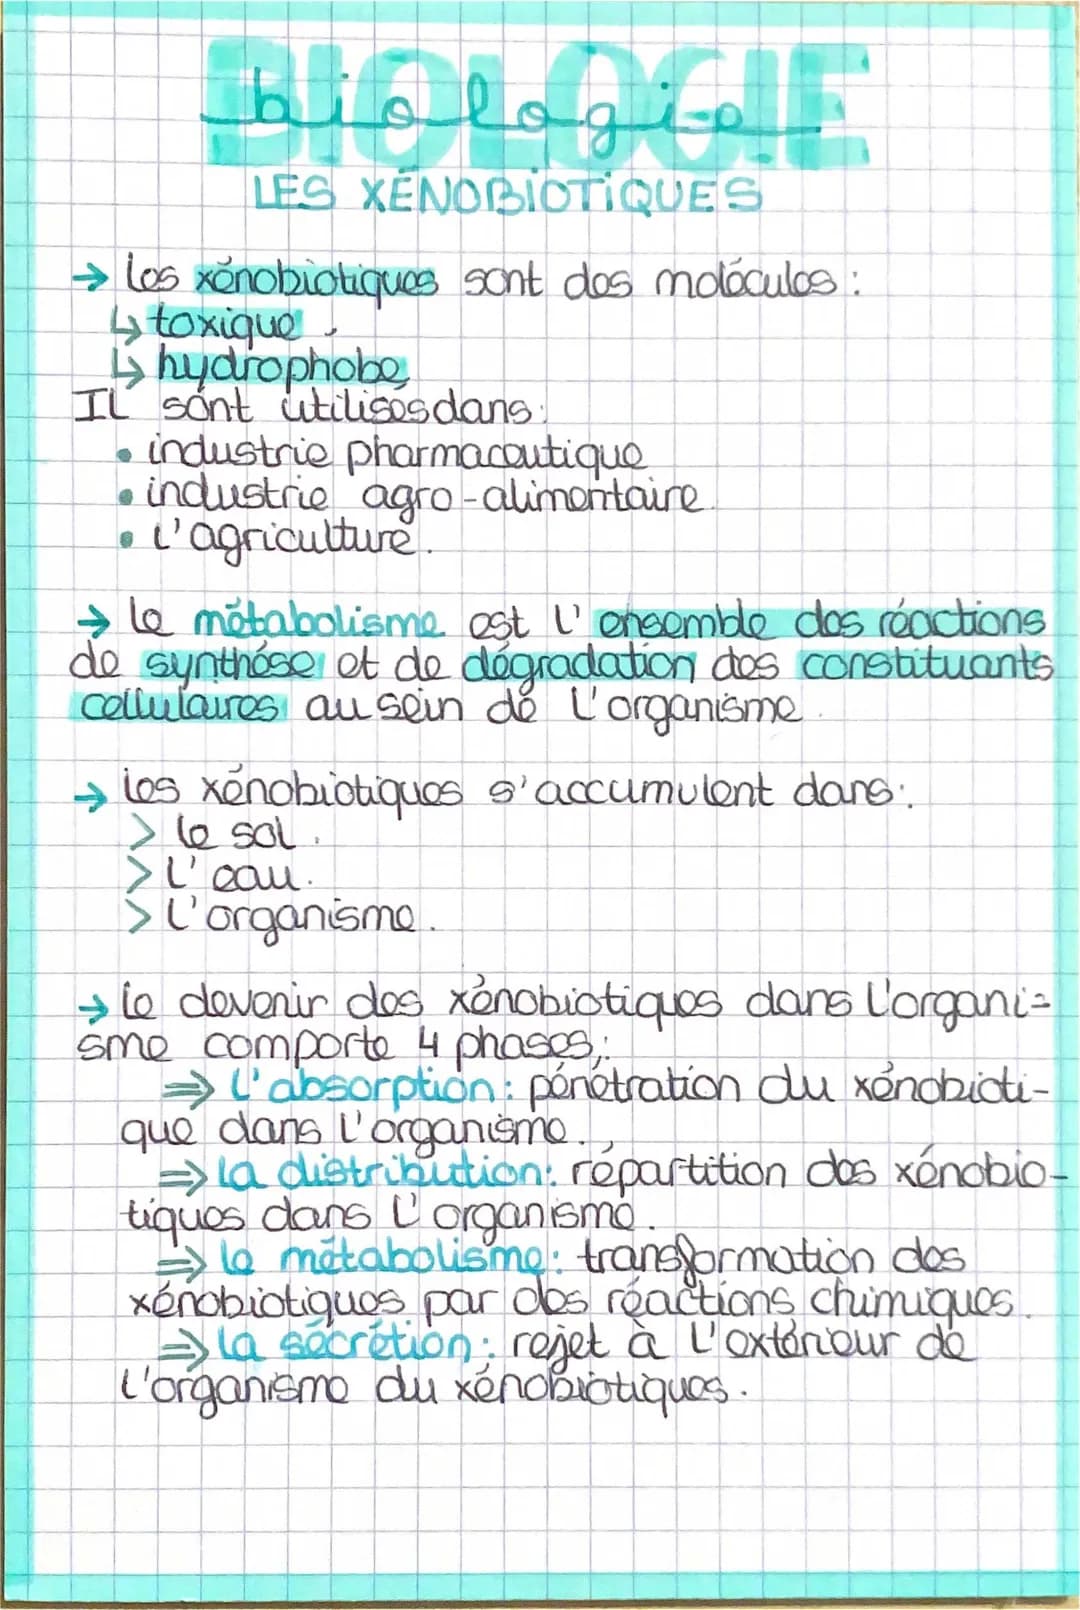 BIOLOGIE
biologie
LES XÉNOBIOTIQUES
→ les xénobiotiques sont des molécules :
↳ toxique.
↳ hydrophobe,
Il sont utilisés dans:
• industrie pharmaceutique
• industrie agro-alimentaire.
• l'agriculture.
→ le métabolisme est l'ensemble des réactions
de synthèse et de dégradation des constituants
cellulaires au sein de l'organisme.
→ les xénobiotiques s'accumulent dans:
> le sol.
> l'eau.
> l'organisme.
→ le devenir des xénobiotiques dans l'organi-
sme comporte 4 phases,:
⇒ l'absorption: pénétration du xénobioti-
que dans l'organisme.
⇒ la distribution: répartition des xénobio-
tiques dans l'organisme.
⇒ le métabolisme: transformation des
xénobiotiques par des réactions chimiques.
⇒ la sécrétion: rejet à l'extérieur de
l'organisme du xénobiotiques.